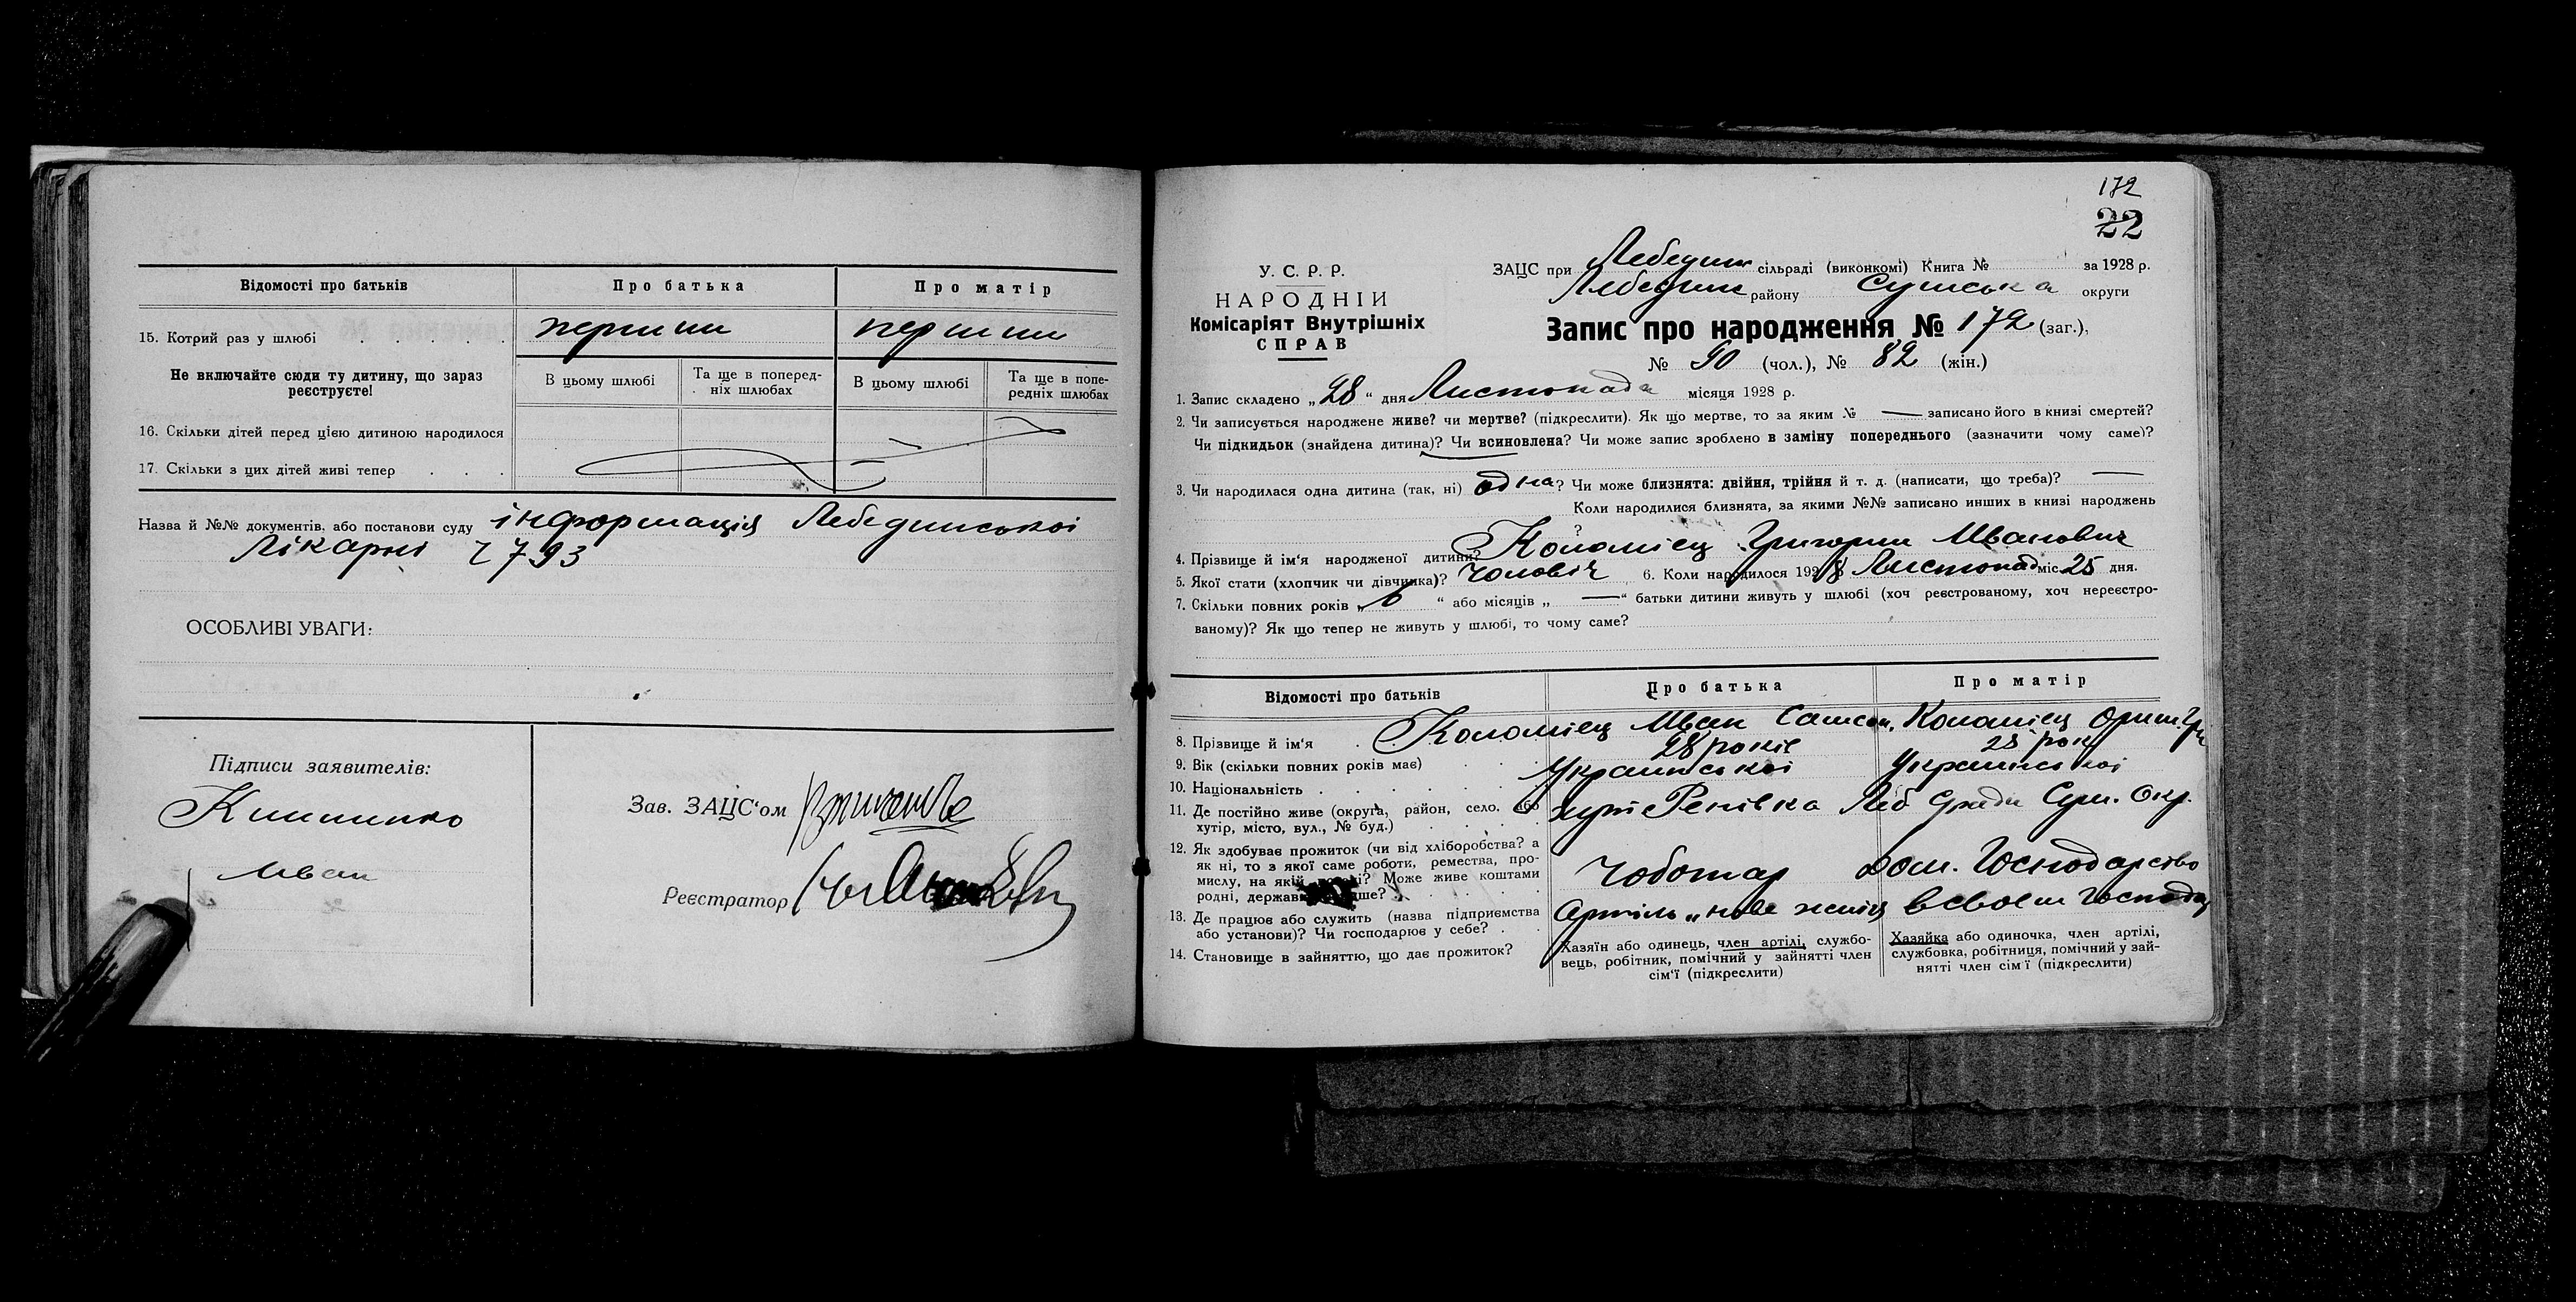 Відомості про батьків
Про батька
Про матір
15. Котрий раз у шлюбі
перший
перший
Не включайте сюди ту дитину, що зараз
реєструєте!
В цьому шлюбі
Та ще в поперед-
ніх шлюбах
В цьому шлюбі
Та ще в попе-
редніх шлюбах
16. Скільки дітей перед цією дитиною народилося
17. Скільки з цих дітей живі тепер
Назва й №№ документів, або постанови суду інформація Лебединської
Лікарні 2793
ОСОБЛИВІ УВАГИ:
Підписи заявителів:
Иван
Зав. ЗАЦС'ом
Реєстратор
172
22
У. С. Р. Р.
НАРОДНІЙ
Комісаріят Внутрішніх
СПРАВ
ЗАЦС при Лебедин сільраді (виконкомі) Книга № за 1928 р.
Лебедин району Сумська округи
Запис про народження № 172 (заг.),
№ 90 (чол.), № 82 (жін.)
1. Запис складено „28“ дня Листопада місяця 1928 р.
2. Чи записується народжене живе? чи мертве? (підкреслити). Як що мертве, то за яким № — записано його в книзі смертей?
Чи підкидьок (знайдена дитина)? Чи всиновлена? Чи може запис зроблено в заміну попереднього (зазначити чому саме)?
3. Чи народилася одна дитина (так, ні) одна? Чи може близнята: двійня, трійня й т. д. (написати, що треба)? —
Коли народилися близнята, за якими №№ записано инших в книзі народжень
?
4. Прізвище й ім'я народженої дитини? Коломіец Григорий Иванович
5. Якої стати (хлопчик чи дівчинка)? чоловіч 6. Коли народилося 1928 Листопад міс 25 дня.
7. Скільки повних років „6“ або місяців „—“ батьки дитини живуть у шлюбі (хоч реєстрованому, хоч нереєстро-
ваному)? Як що тепер не живуть у шлюбі, то чому саме?
Відомості про батьків
Про батька
Про матір
8. Прізвище й ім'я
Коломіец Иван Самсон.
Коломіец Орина Гр
9. Вік (скільки повних років має)
28 років
28 рок
10. Національність
Української
Української
11. Де постійно живе (округа, район, село, або
хутір, місто, вул., № буд.)
хут Сум. Окр.
12. Як здобуває прожиток (чи від хліборобства? а
як ні, то з якої саме роботи, ремества, про-
мислу, на якій
Може живе коштами
родні, держави
Чоботар
Дом. Господарство
13. Де працює або служить (назва підприємства
або установи)? Чи господарює у себе?
Артіль „нове життя
в своем господар
14. Становище в зайняттю, що дає прожиток?
Хазяїн або одинець, член артілі, службо-
вець, робітник, помічний у зайнятті член
сім'ї (підкреслити)
Хазяйка або одиночка, член артілі,
службовка, робітниця, помічний у зай-
нятті член сім'ї (підкреслити)